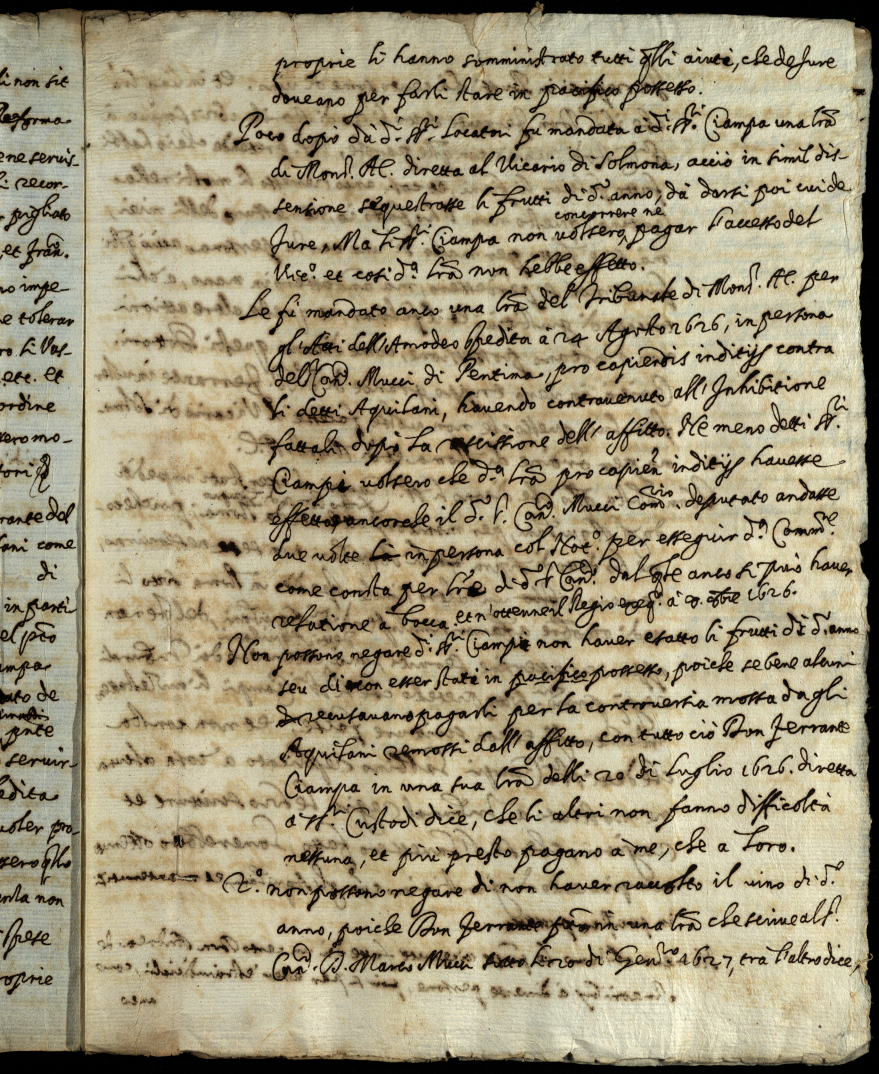 li non sit
Reforma
ene servis-
li recor-
pigliato
et fran.
no impe-
e tolerar
ro li Vas-
etc. et
ordine
tero mo-
tori
rante del
lani come
di
in parti
el pto
ampa
ato de
pnte
servir-
edita
voler pro-
sero qllo
anta non
spese
roprie
proprie li hanno somministrato tutti qlli aiuti, che de Jure
doveano per farli stare in pacifico possesso.
Poco dopò dà d.i SS.ri Locatori fu mandata à d.i SS.ri Ciampa una lra
di Mons.r Ill. diretta al Vicario di Solmona, acciò in simil dis-
sensione sequestrasse li frutti di d.o anno, dà darsi poi cui de
concorrere ne
Jure, Ma li SS.ri Ciampa non volsero, pagar l'accesso del
Vic.o et così d.a lra non hebbe effetto.
Le fù mandato anco una lra del Tribunale di Mons.r Ill. per
gl'Atti dell'Amodeo spedita à 24 Agosto 1626, in persona
del Can.o Mucci di Pentima, pro capiendis inditijs contra
li detti Aquilani, havendo contravenuto all'Inhibitione
fattali dopò la rescissione dell'affitto. Ne meno detti SS.ri
Ciampi volsero che d.a lra pro capien. inditijs havesse
effetto, ancorche il d.o S.r Can.o Mucci Com.rio deputato andasse
due volte là in persona col Not.o per esseguir d.a Comm.e
come consta per lre di d.o S.r Can.o dal qle anco si può haver
relatione à bocca, et n'ottenne il Regio exeq. à 1626.
Non possono negare d.i SS.ri Ciampi non haver esatto li frutti di d.o anno
seu di non esser stati in pacifico possesso, poiche se bene alcuni
recusavano pagarli per la controversia mossa dagli
Aquilani remossi dall'affitto, con tutto ciò Don Ferrante
Ciampa in una sua lra delli 20 di Luglio 1626. diretta
à SS.ri Custodi dice, che li altri non fanno difficoltà
nessuna, et più presto pagano à me, che a loro.
2.o non possono negare di non haver raccolto il vino di d.o
anno, poiche Don Ferrante in una lra che scrive al S.r
Can.o D. Marco Mucci sotto li 20 di Gen.ro 1627, tra l'altro dice,